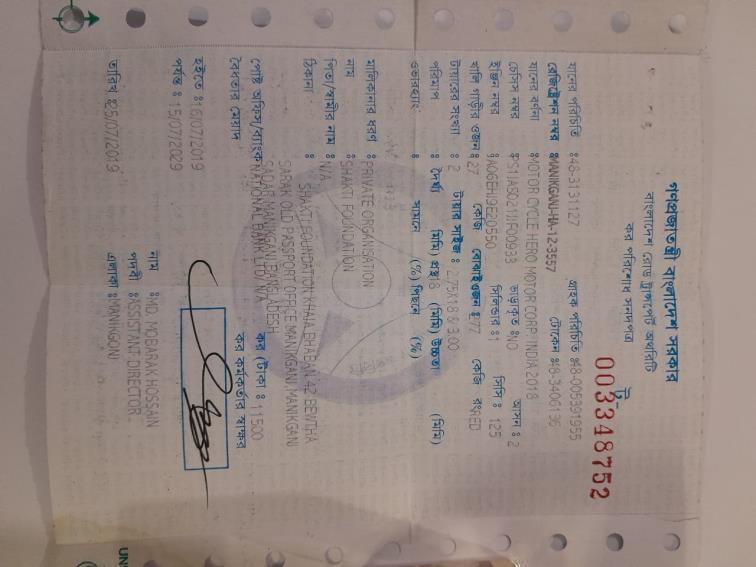 গণপ্রজাতন্ত্রী বাংলাদেশ সরকার
বাংলাদেশ রোড ট্রান্সপোর্ট অথরিটি
কর পরিশোধ সনদপত্র
0033 48752
যানের পরিচিতি : 48-3131127 গ্রাহক পরিচিতি : 48-005391955
রেজিস্ট্রেশন নম্বর : MANIKGANJ-HA-12-3557 টোকেন : 48-3406136
যানের বর্ণনা : MOTOR CYCLE HERO MOTOR CORP. INDIA 2018
চেসিস নম্বর : ভাড়াকৃত : NO আসন : 2
ইঞ্জিন নম্বর : সিলিন্ডার : 1 সিসি : 125
খালি গাড়ীর ওজন : 27 কেজি বোঝাই ওজন : 277 কেজি রং : RED
টায়ারের সংখ্যা : 2 টায়ার সাইজ : 2.75X18 & 3.00
পরিমাপ : দৈর্ঘ্য (মিমি) প্রস্থ 18 (মিমি) উচ্চতা (মিমি)
ওভারহ্যাং : সামনে (%) পিছনে (%)
মালিকানার ধরণ : PRIVATE ORGANISATION
নাম : SHAKTI FOUNDATION
পিতা/স্বামীর নাম : N/A
ঠিকানা : SHAKTI FOUNDATION KHAJA BHABAN 42 BEWTHA
SARAK OLD PASSPORT OFFICE MANIKGANJ, MANIKGANJ
SADAR MANIKGANJ BANGLADESH
পোষ্ট অফিস/ব্যাংক NATIONAL BANK LTD. N/A কর (টাকা) : 11,500
বৈধতার মেয়াদ কর কর্মকর্তার স্বাক্ষর
হইতে : 16/07/2019
পর্যন্ত : 15/07/2029
নাম : MD. MOBARAK HOSSAIN
পদবী : ASSISTANT DIRECTOR
তারিখ : 25/07/2019 এলাকা : MANIKGONJ
UN